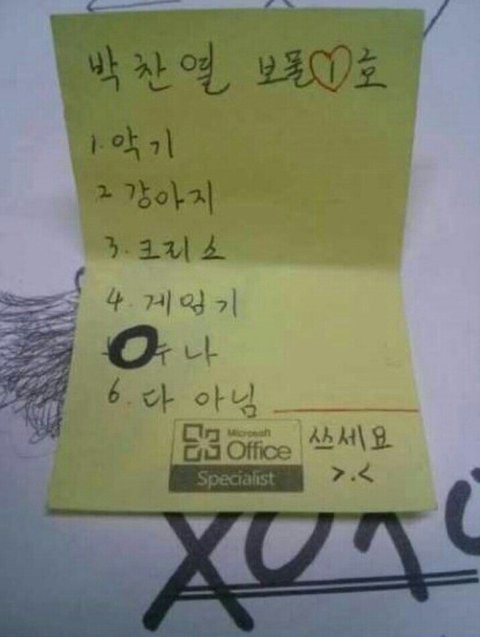 박찬열 보물 1호
1. 악기
2 강아지
3. 크리스
4. 게임기
누나
6. 다 아님
Microsoft
Office
Specialist
쓰세요
>.<
XOXO